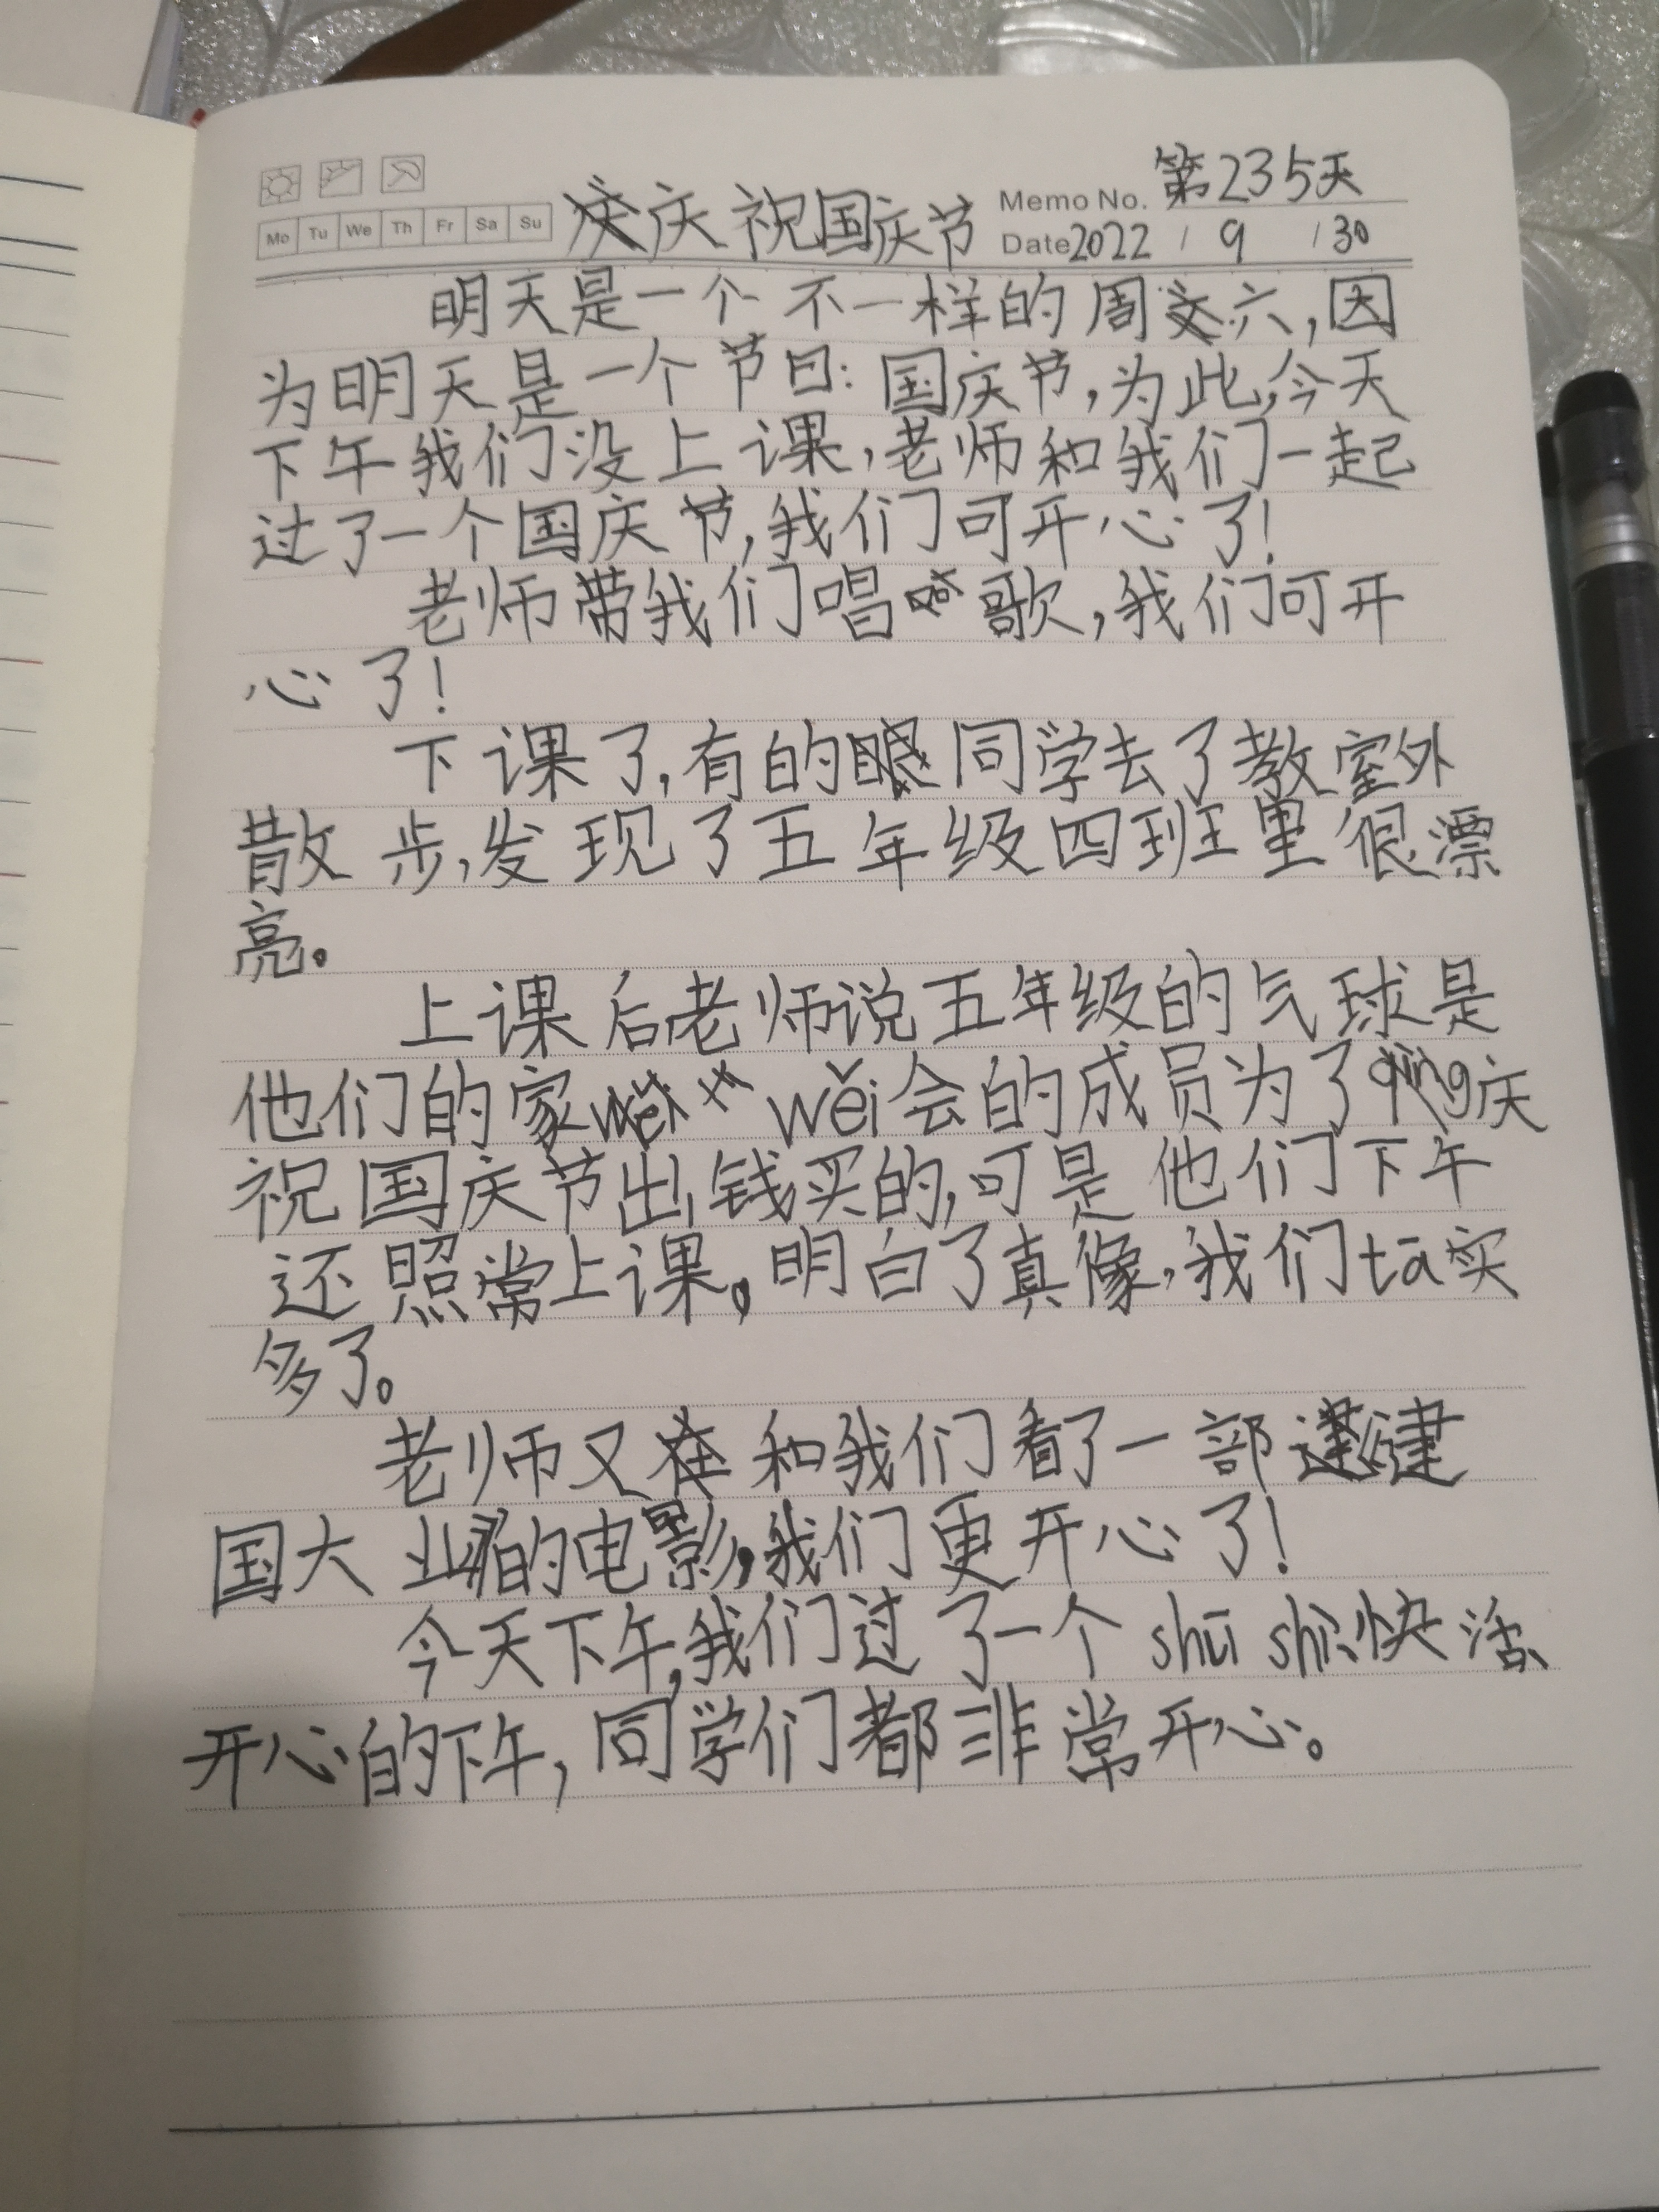 第235天
Memo No.
Mo Tu We Th Fr Sa Su
庆祝国庆节
Date 2022 / 9 / 30
明天是一个不一样的周六,因
为明天是一个节日:国庆节,为此,今天
下午我们没上课,老师和我们一起
过了一个国庆节,我们可开心了!
老师带我们唱歌,我们可开
心了!
下课了,有的同学去了教室外
散步,发现了五年级四班里很漂
亮。
上课后老师说五年级的气球是
他们的家wěi会的成员为了庆
祝国庆节出钱买的,可是他们下午
还照常上课。明白了真像,我们tā实
多了。
老师又和我们看了一部建
国大业的电影,我们更开心了!
今天下午,我们过了一个shū shì、快活、
开心的下午,同学们都非常开心。